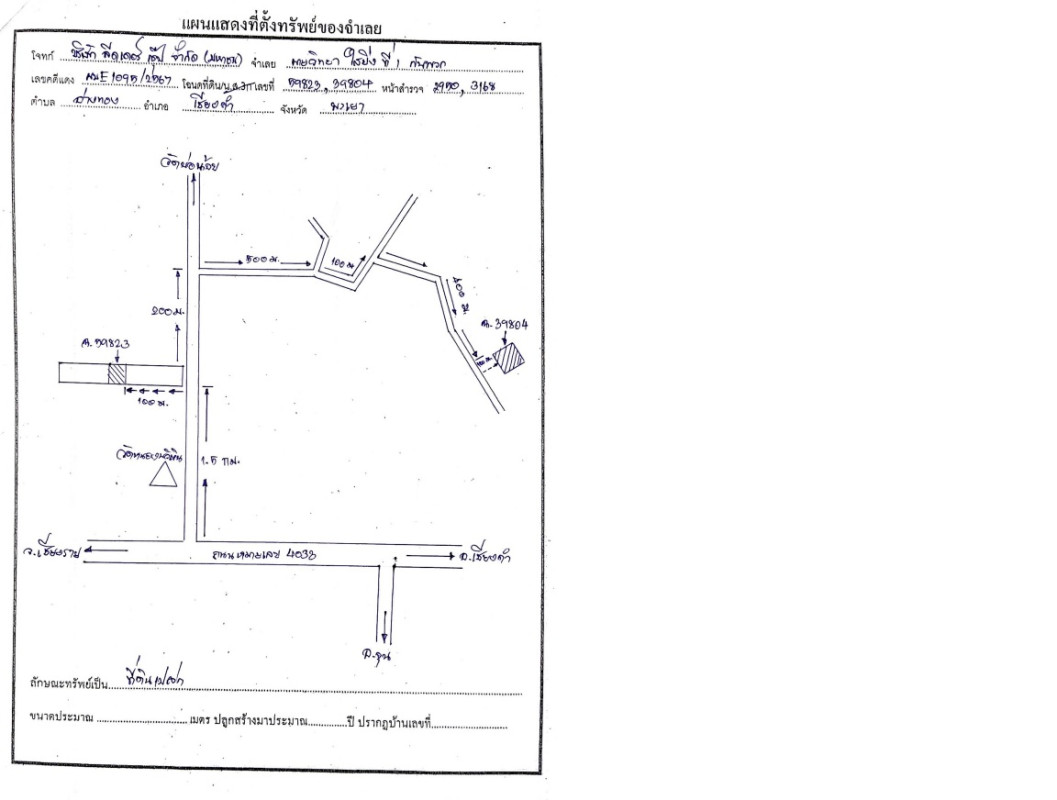 แผนแสดงที่ตั้งทรัพย์ของจำเลย
โจทก์ บริษัท ลีดเดอร์ กรุ๊ป จำกัด (มหาชน) จำเลย ที่ 1 กับพวก
เลขคดีแดง ผบE1095/2567 โฉนดที่ดิน/น.ส.3ก เลขที่ 59823, 39804 หน้าสำรวจ 2950, 3168
ตำบล อ่างทอง อำเภอ เชียงคำ จังหวัด พะเยา
500 ม.
100 ม
400 ม
200 ม.
ฉ. 39804
ฉ. 59823
100 ม.
1.5 กม.
จ.เชียงราย
ถนนหมายเลข 4038
อ.เชียงคำ
อ.จุน
ลักษณะทรัพย์เป็น ที่ดินเปล่า
ขนาดประมาณ เมตร ปลูกสร้างมาประมาณ ปี ปรากฏบ้านเลขที่